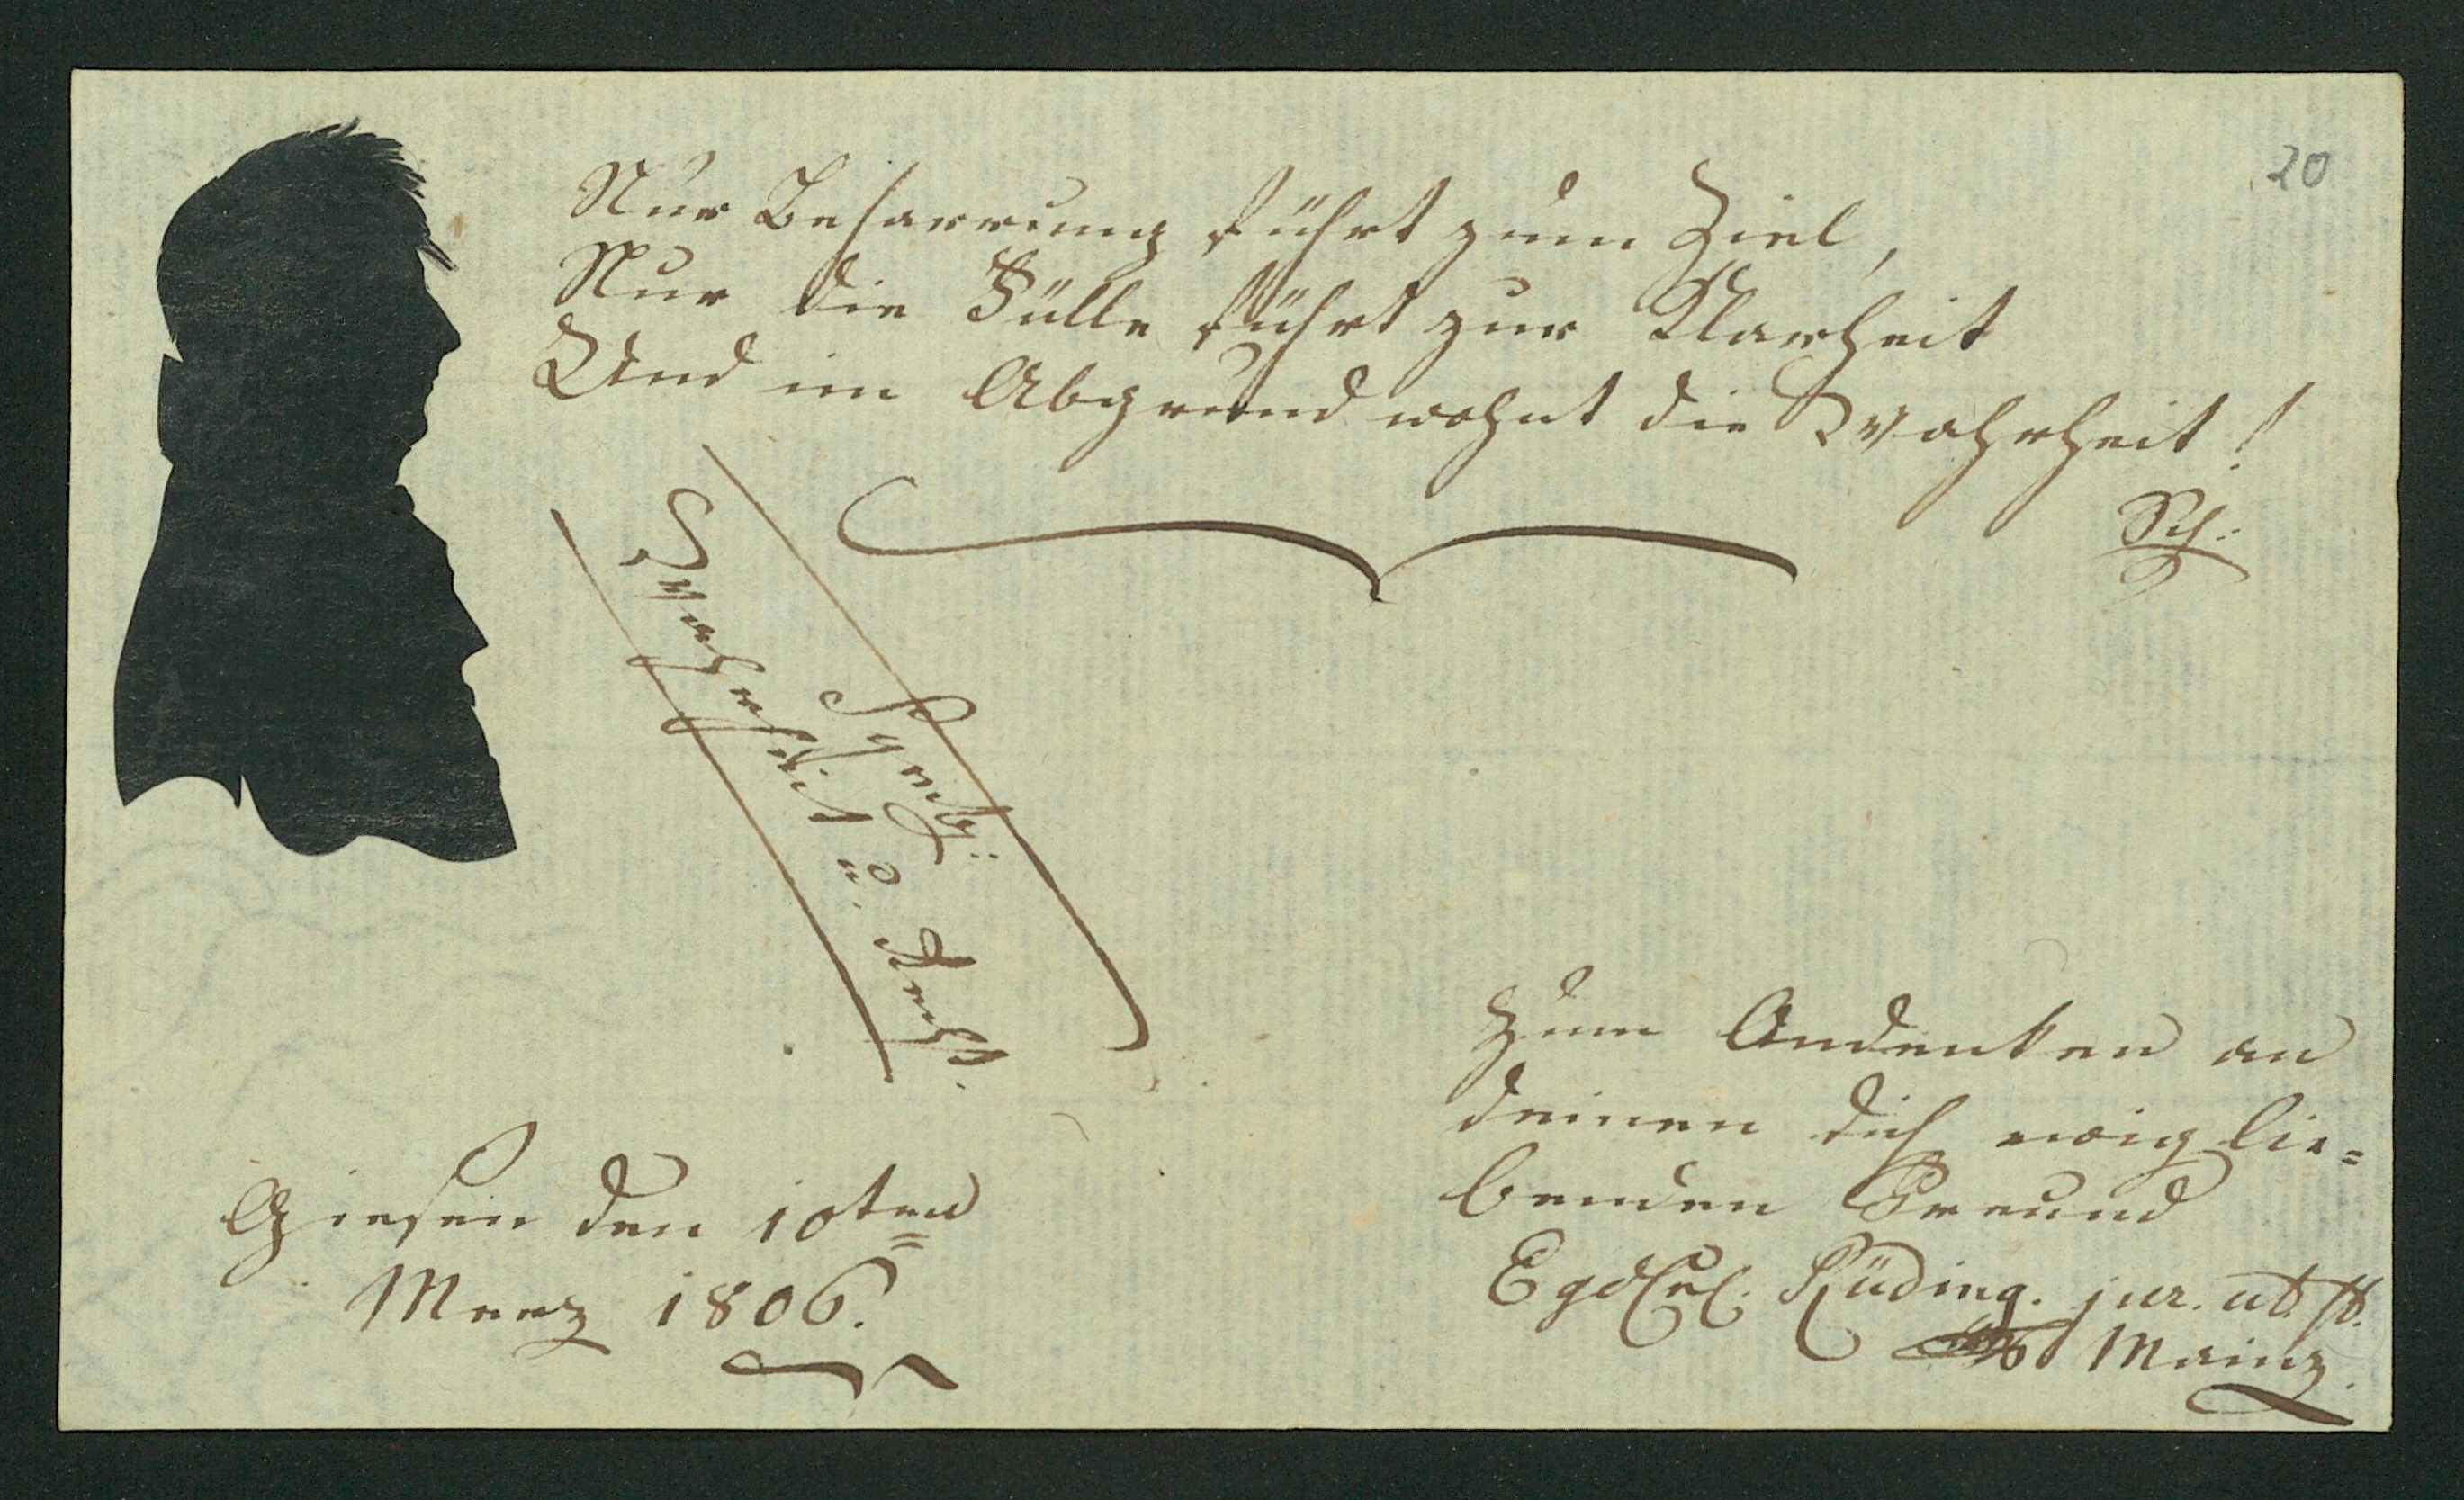 20
Nur Beharrung führt zum Ziel,
Nur die Fülle führt zur Klarheit
Und im Abgrund wohnt die Wahrheit!
Sch:
Symb:
Wahrheit u. Recht.
Giesen den 10ten
Merz 1806.
Zum Andenken an
deinen dich ewig lie=
benden Freund
Rüding. jur. ut. st.
Mainz.